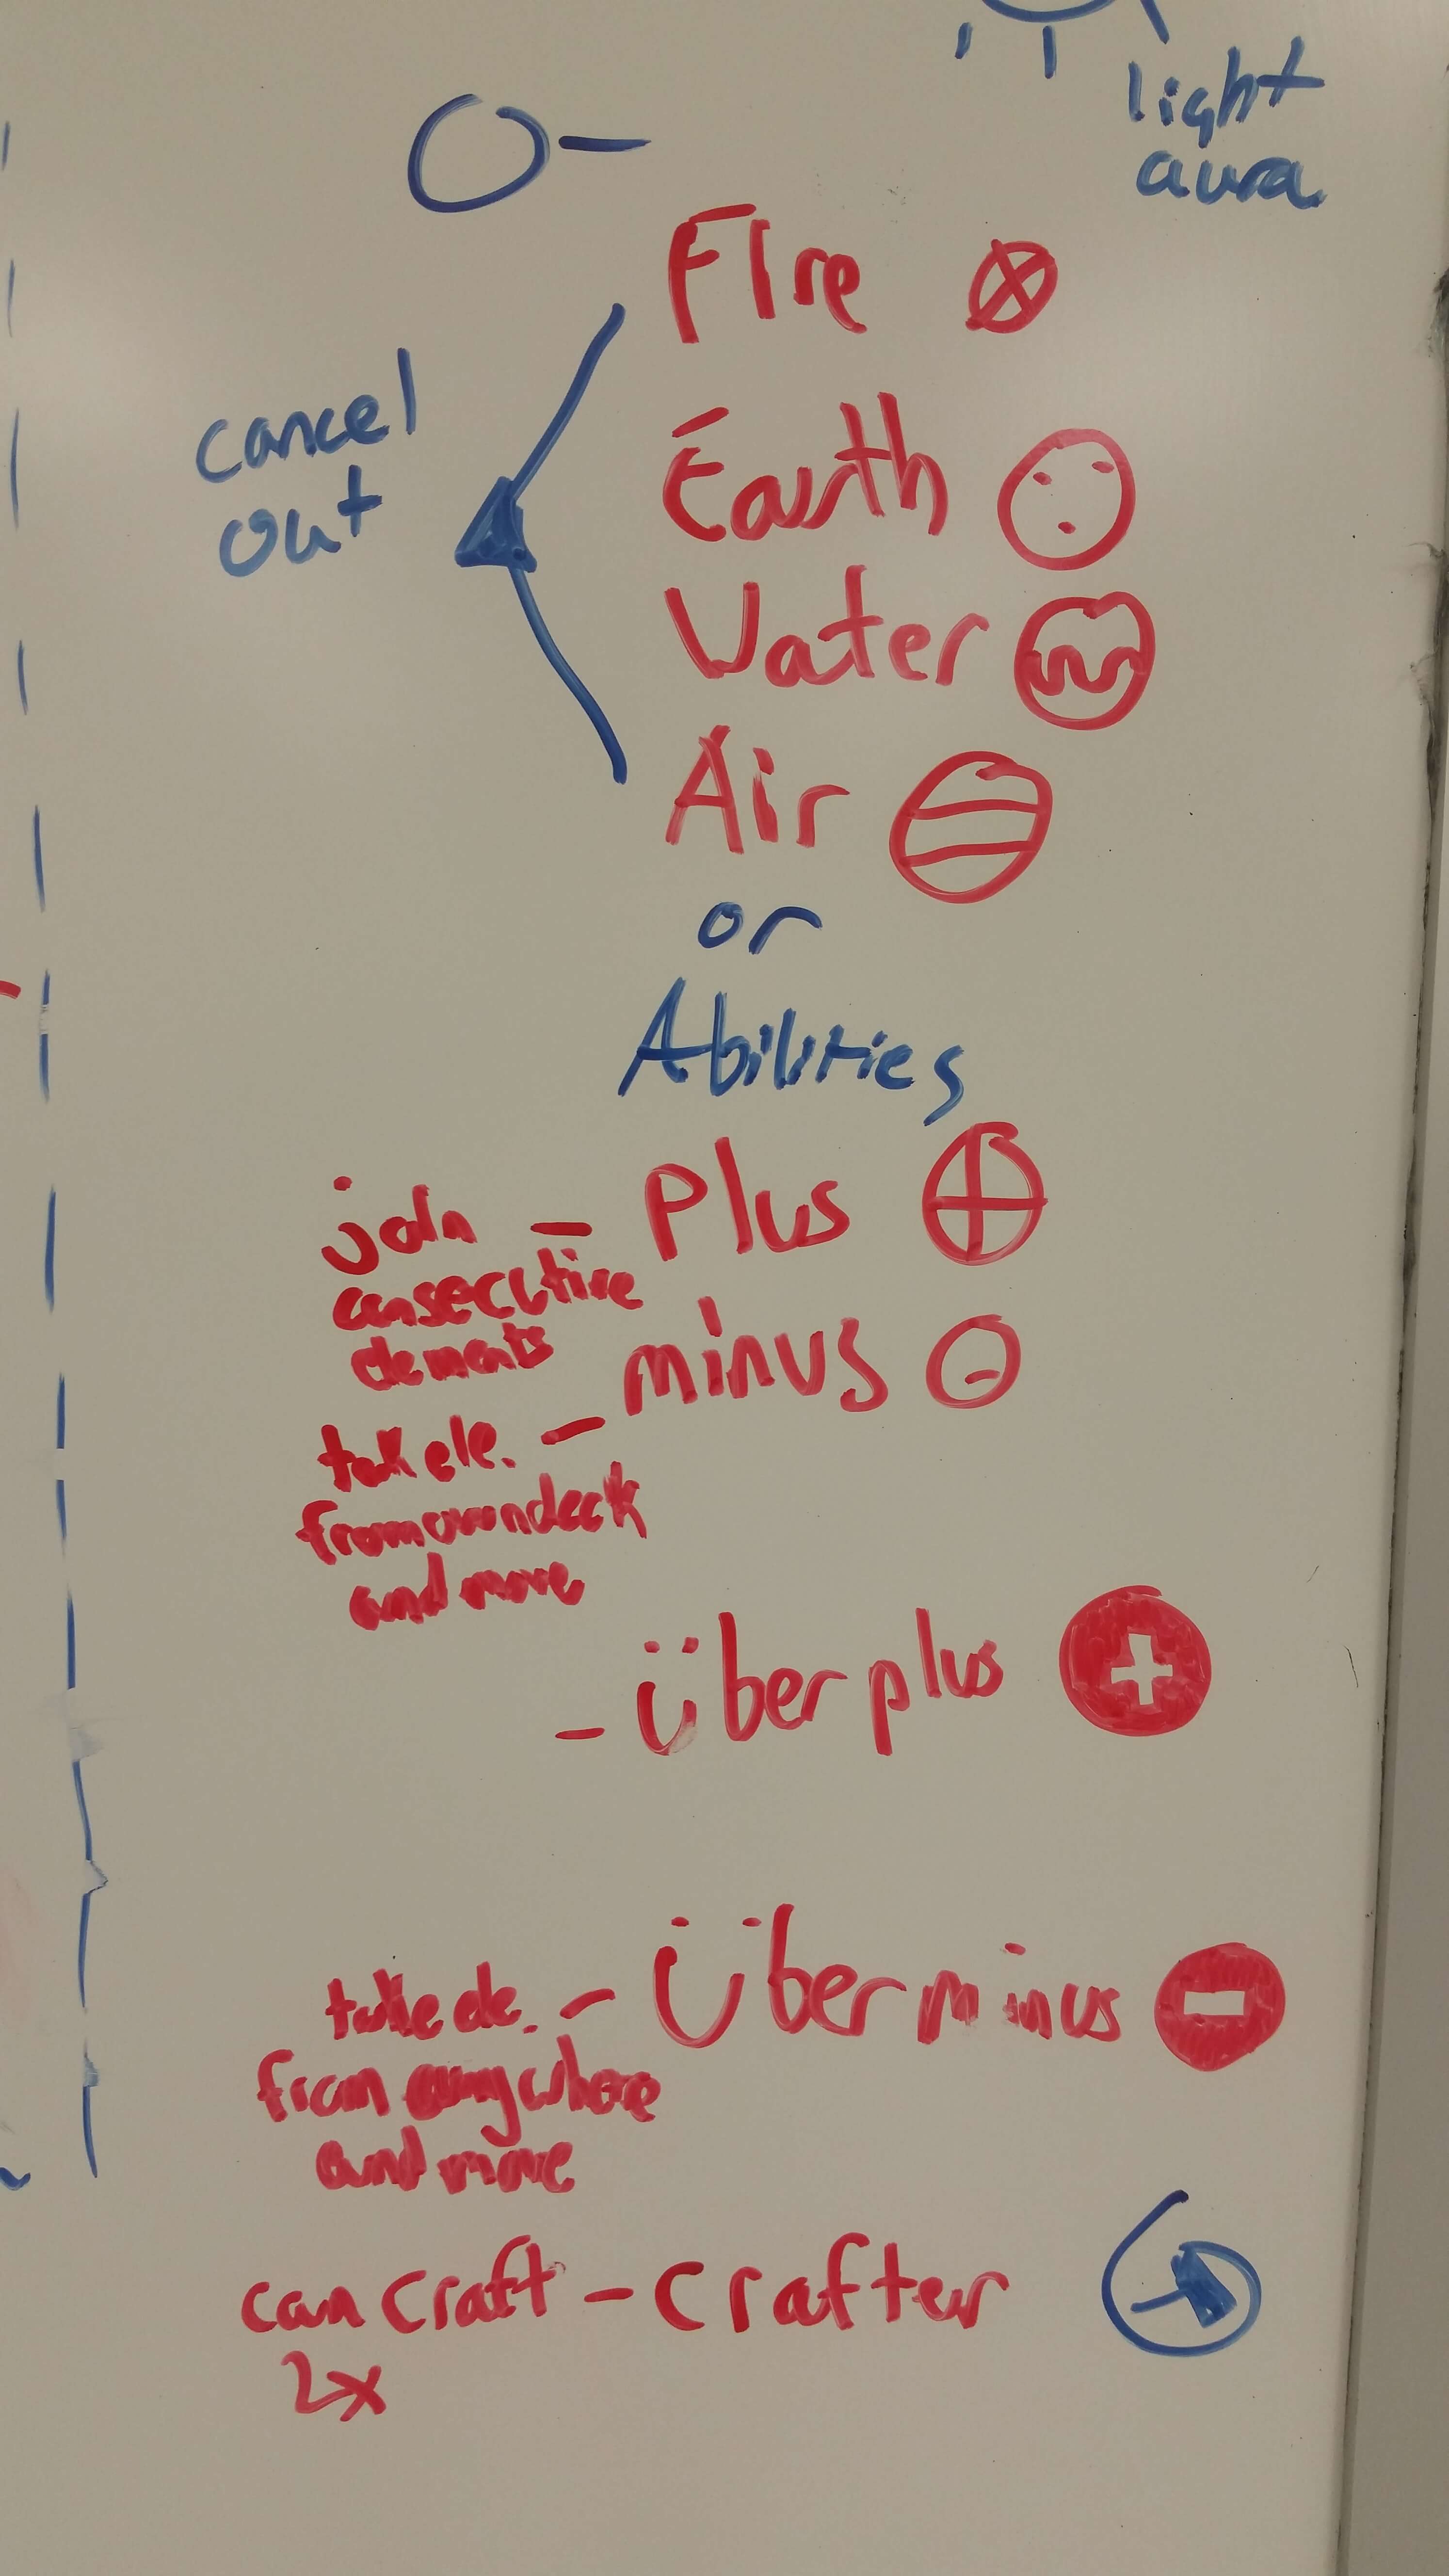 light
aura
Fire
cancel
out
Earth
Water
Air
or
Abilities
join - Plus
consecutive
elements
minus
take ele. -
from own deck
and move
- Über plus
take ele. - Über minus
from anywhere
and move
can craft - crafter
2x